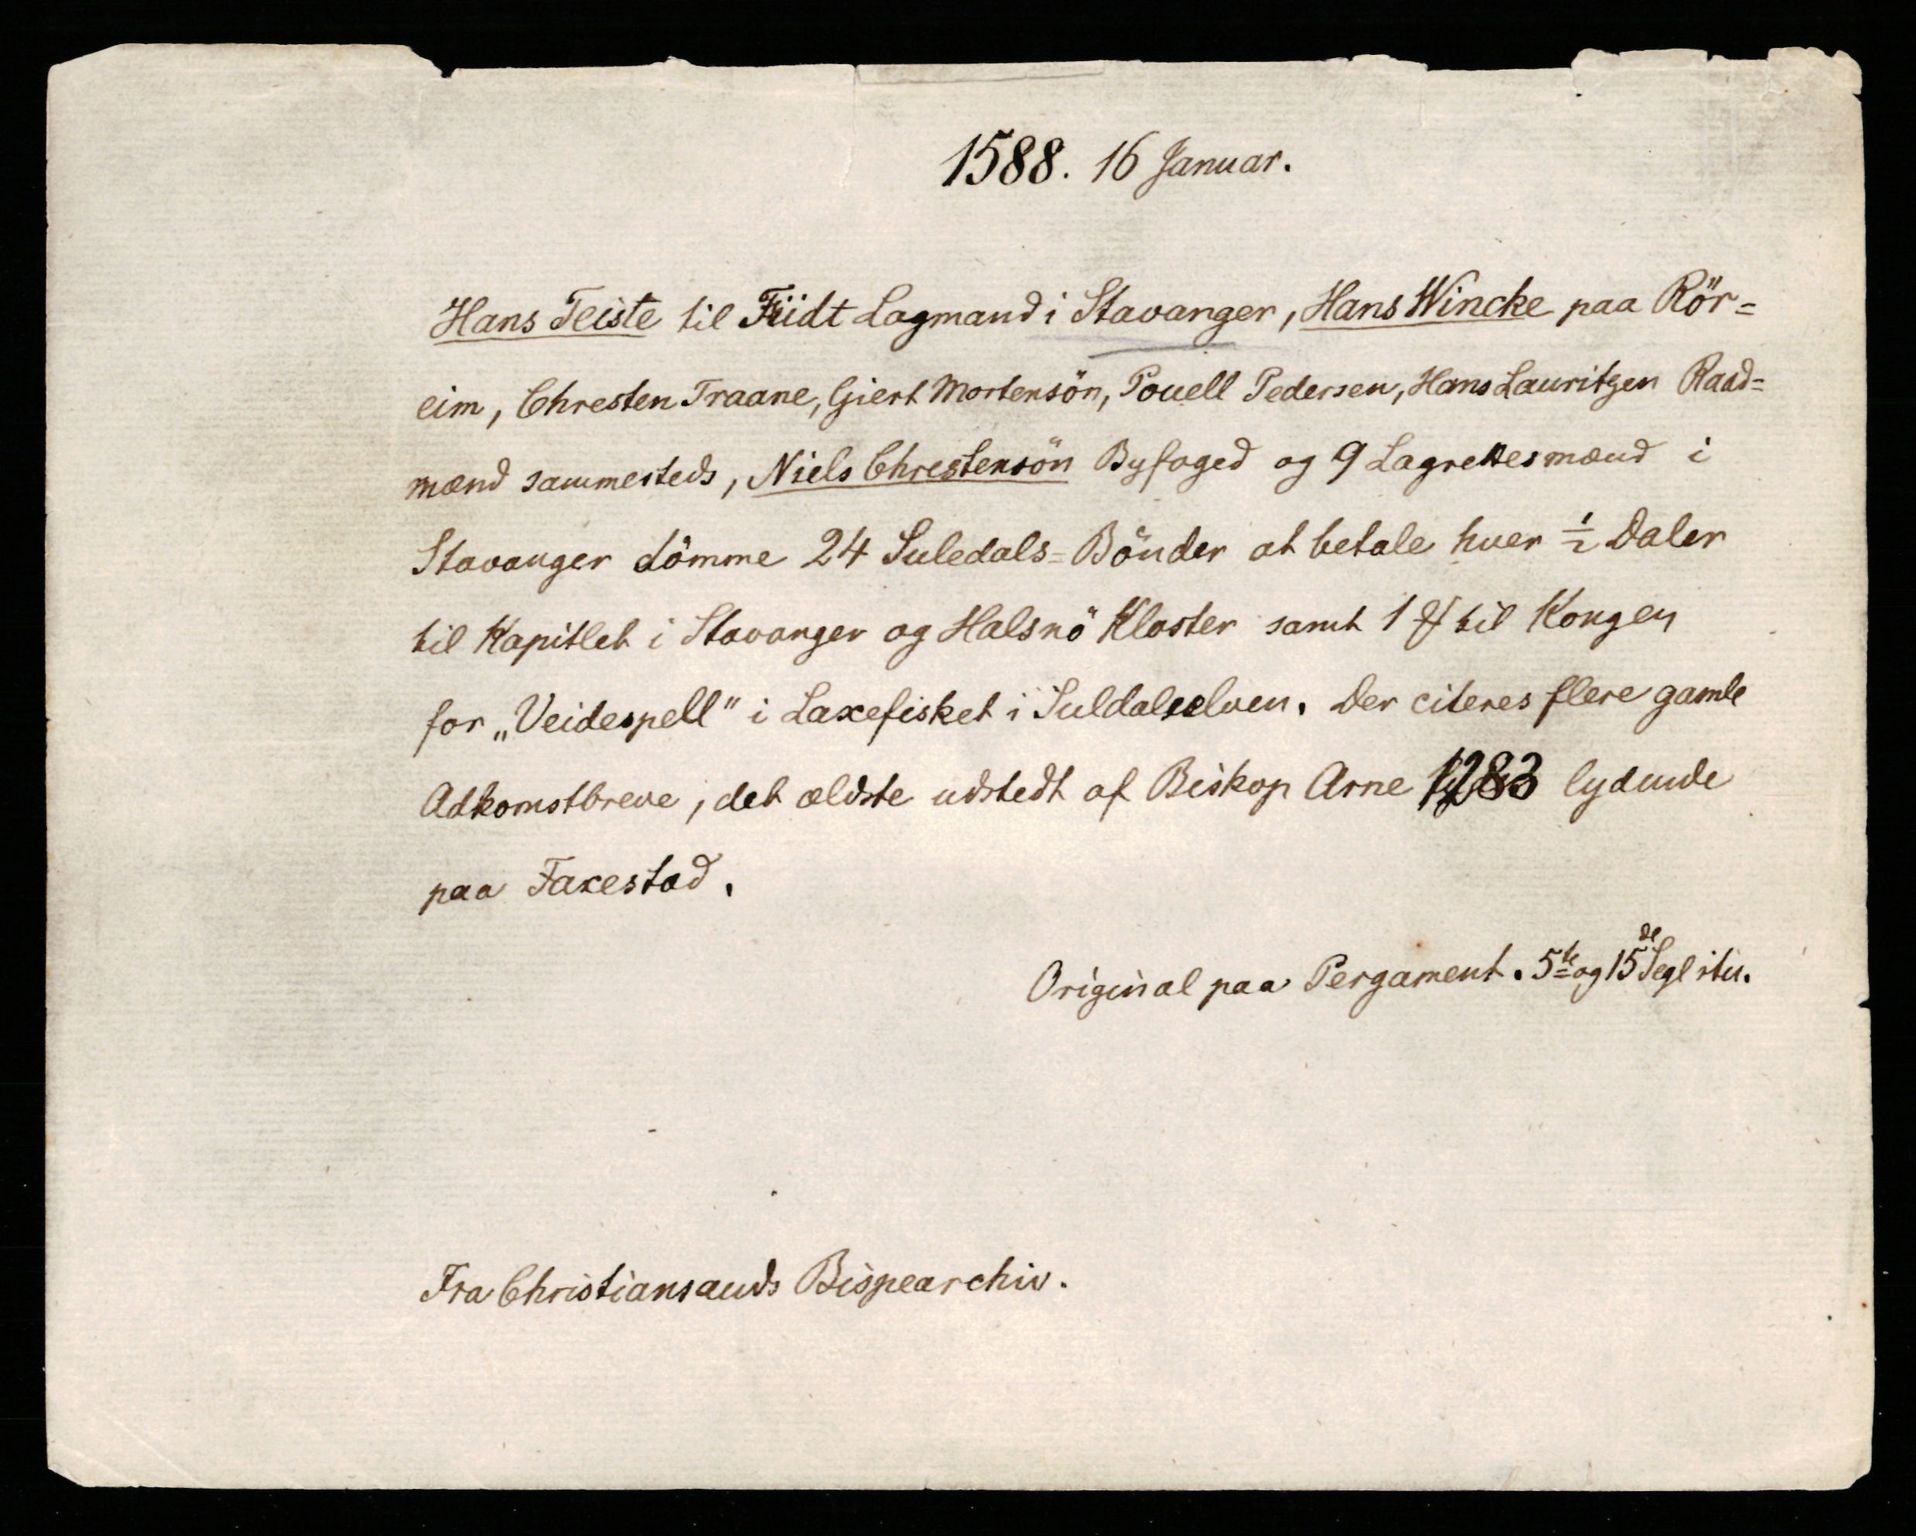 1588. 16 Januar.
Hans Teiste til Füdt Lagmand i Stavanger, Hans Wincke paa Rör=
eim, Chresten Traane, Giert Mortensön, Pouell Pedersen, Hans Lauritzen Raad=
mænd sammesteds, Niels Chrestensön Byfoged og 9 Lagrettesmænd i
Stavanger dömme 24 Suledals=Bönder at betale hver ½ Daler
til Kapitlet i Stavanger og Halsnö Kloster samt 1 til Kongen
for „Veidespell" i Laxefisket i Suldalselven. Der citeres flere gamle
Adkomstbreve, det ældste udstedt af Biskop Arne 1283 lydende
paa Faxestad.
Original paa Pergament. 5te og 15de Segl itu.
Fra Christiansands Bispearchiv.